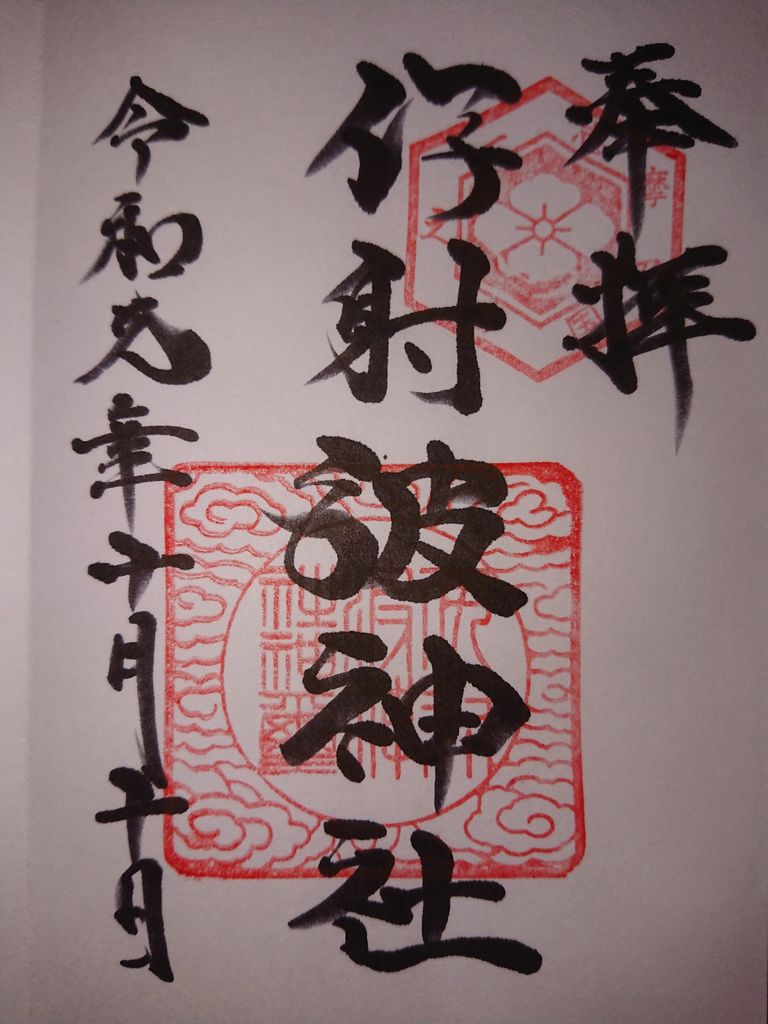 奉拝
伊射波神社
令和元年十月十日